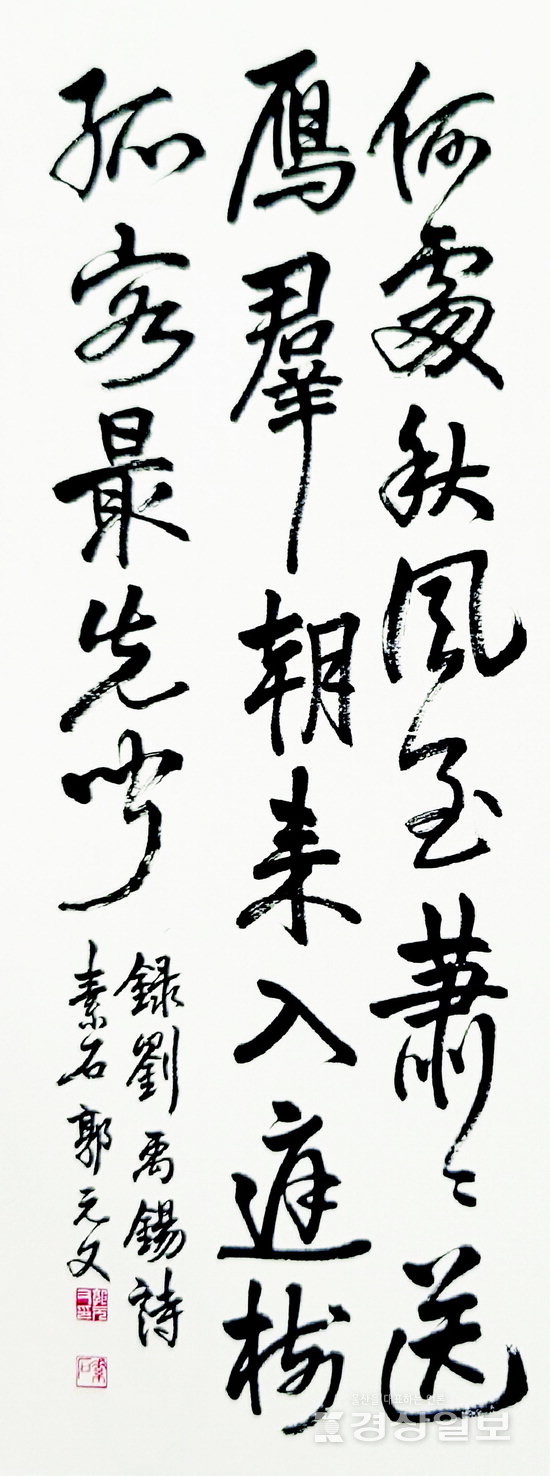 何處秋風至蕭〻送
雁羣朝来入庭樹
孤客最先聞
錄劉禹錫詩
素石郭元文
경상일보